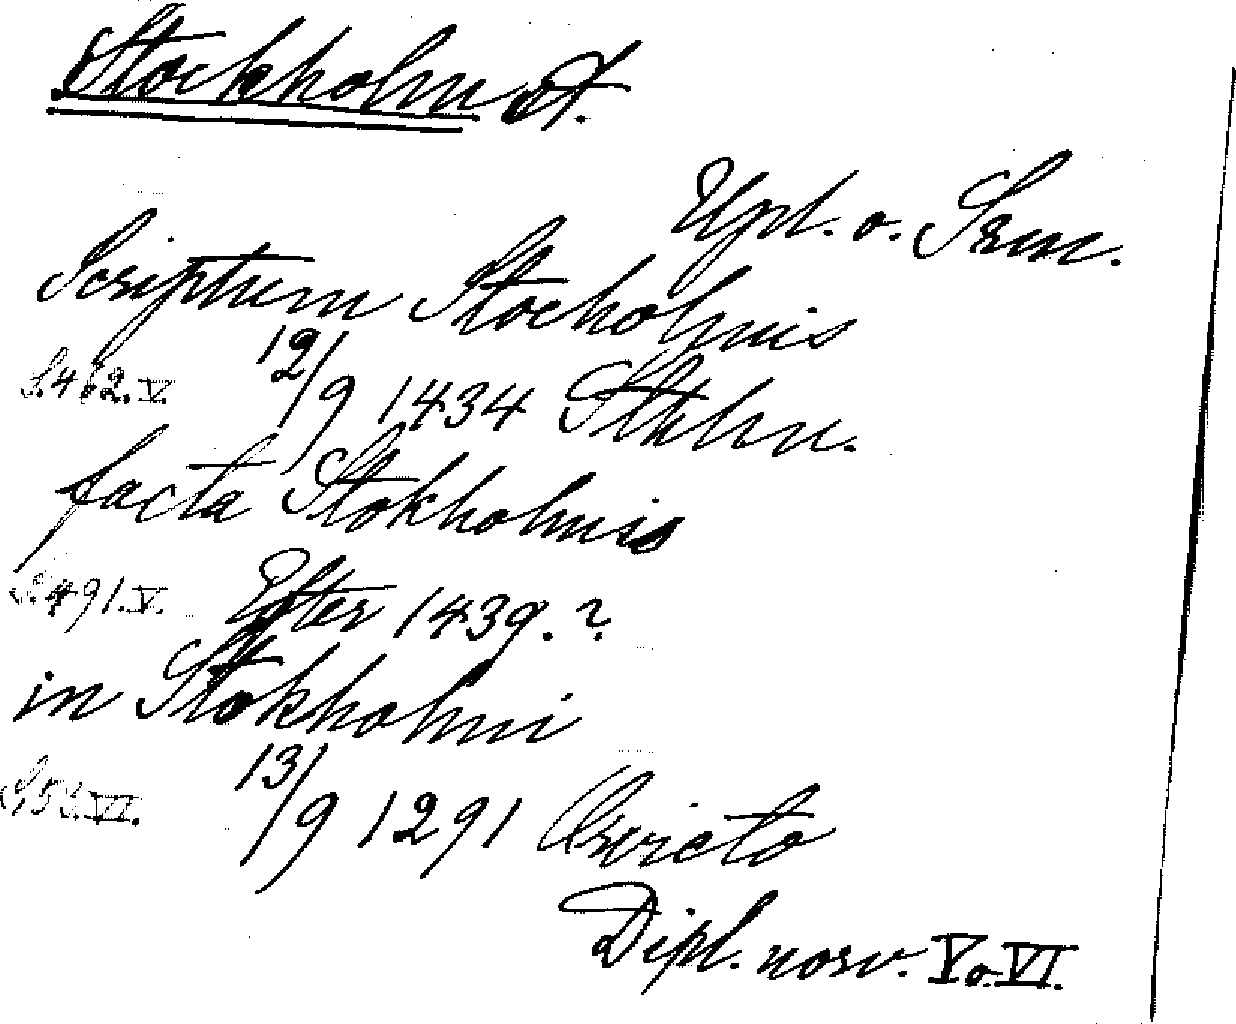 Stockholm st.
Upl. o. Srm.
Scriptum Stocholmis
S. 462. V. 12/9 1434 Sthlm.
facta Stokholmis
S. 491. V. Efter 1439. ?
in Stokholmi
S. 53. VI. 13/9 1291 Orvieto
Dipl. norv. V o. VI.